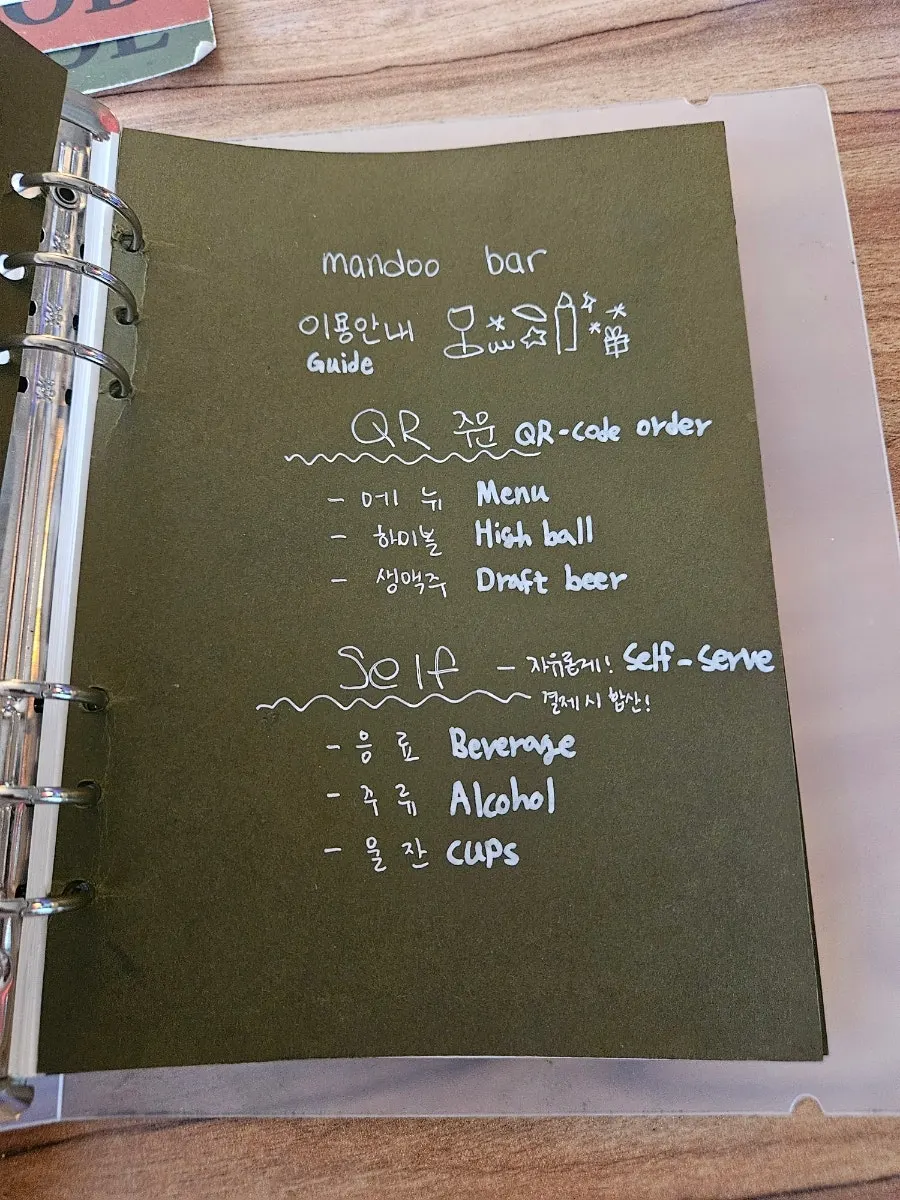 mandoo bar
이용안내
Guide
QR 주문 QR-code order
- 메뉴 Menu
- 하이볼 High ball
- 생맥주 Draft beer
Self - 자유롭게! Self-serve
결제 시 합산!
- 음료 Beverage
- 주류 Alcohol
- 물잔 cups